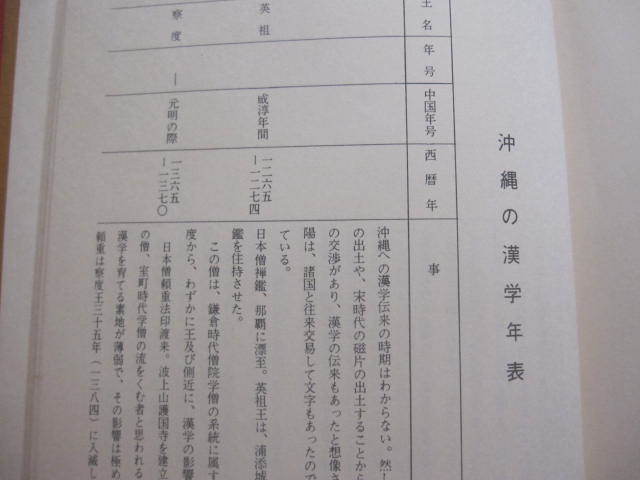 沖縄の漢学年表
王名
年号
中国年号
西暦年
事
沖縄への漢学伝来の時期はわからない。然し
の出土や、宋時代の磁片の出土することから
の交渉があり、漢学の伝来もあったと想像さ
陽は、諸国と往来交易して文字もあったので
ている。
英祖
咸淳年間
一二六五
―一二七四
日本僧禅鑑、那覇に漂至。英祖王は、浦添城
鑑を住持させた。
この僧は、鎌倉時代僧院学僧の系統に属す
度から、わずかに王及び側近に、漢学の影響
察度
―
元明の際
一三六五
―一三七〇
日本僧頼重法印渡来。波上山護国寺を建立
の僧、室町時代学僧の流をくむ者と思われる
漢学を育てる素地が薄弱で、その影響は極め
頼重は察度王三十五年（一三八四）に入滅し